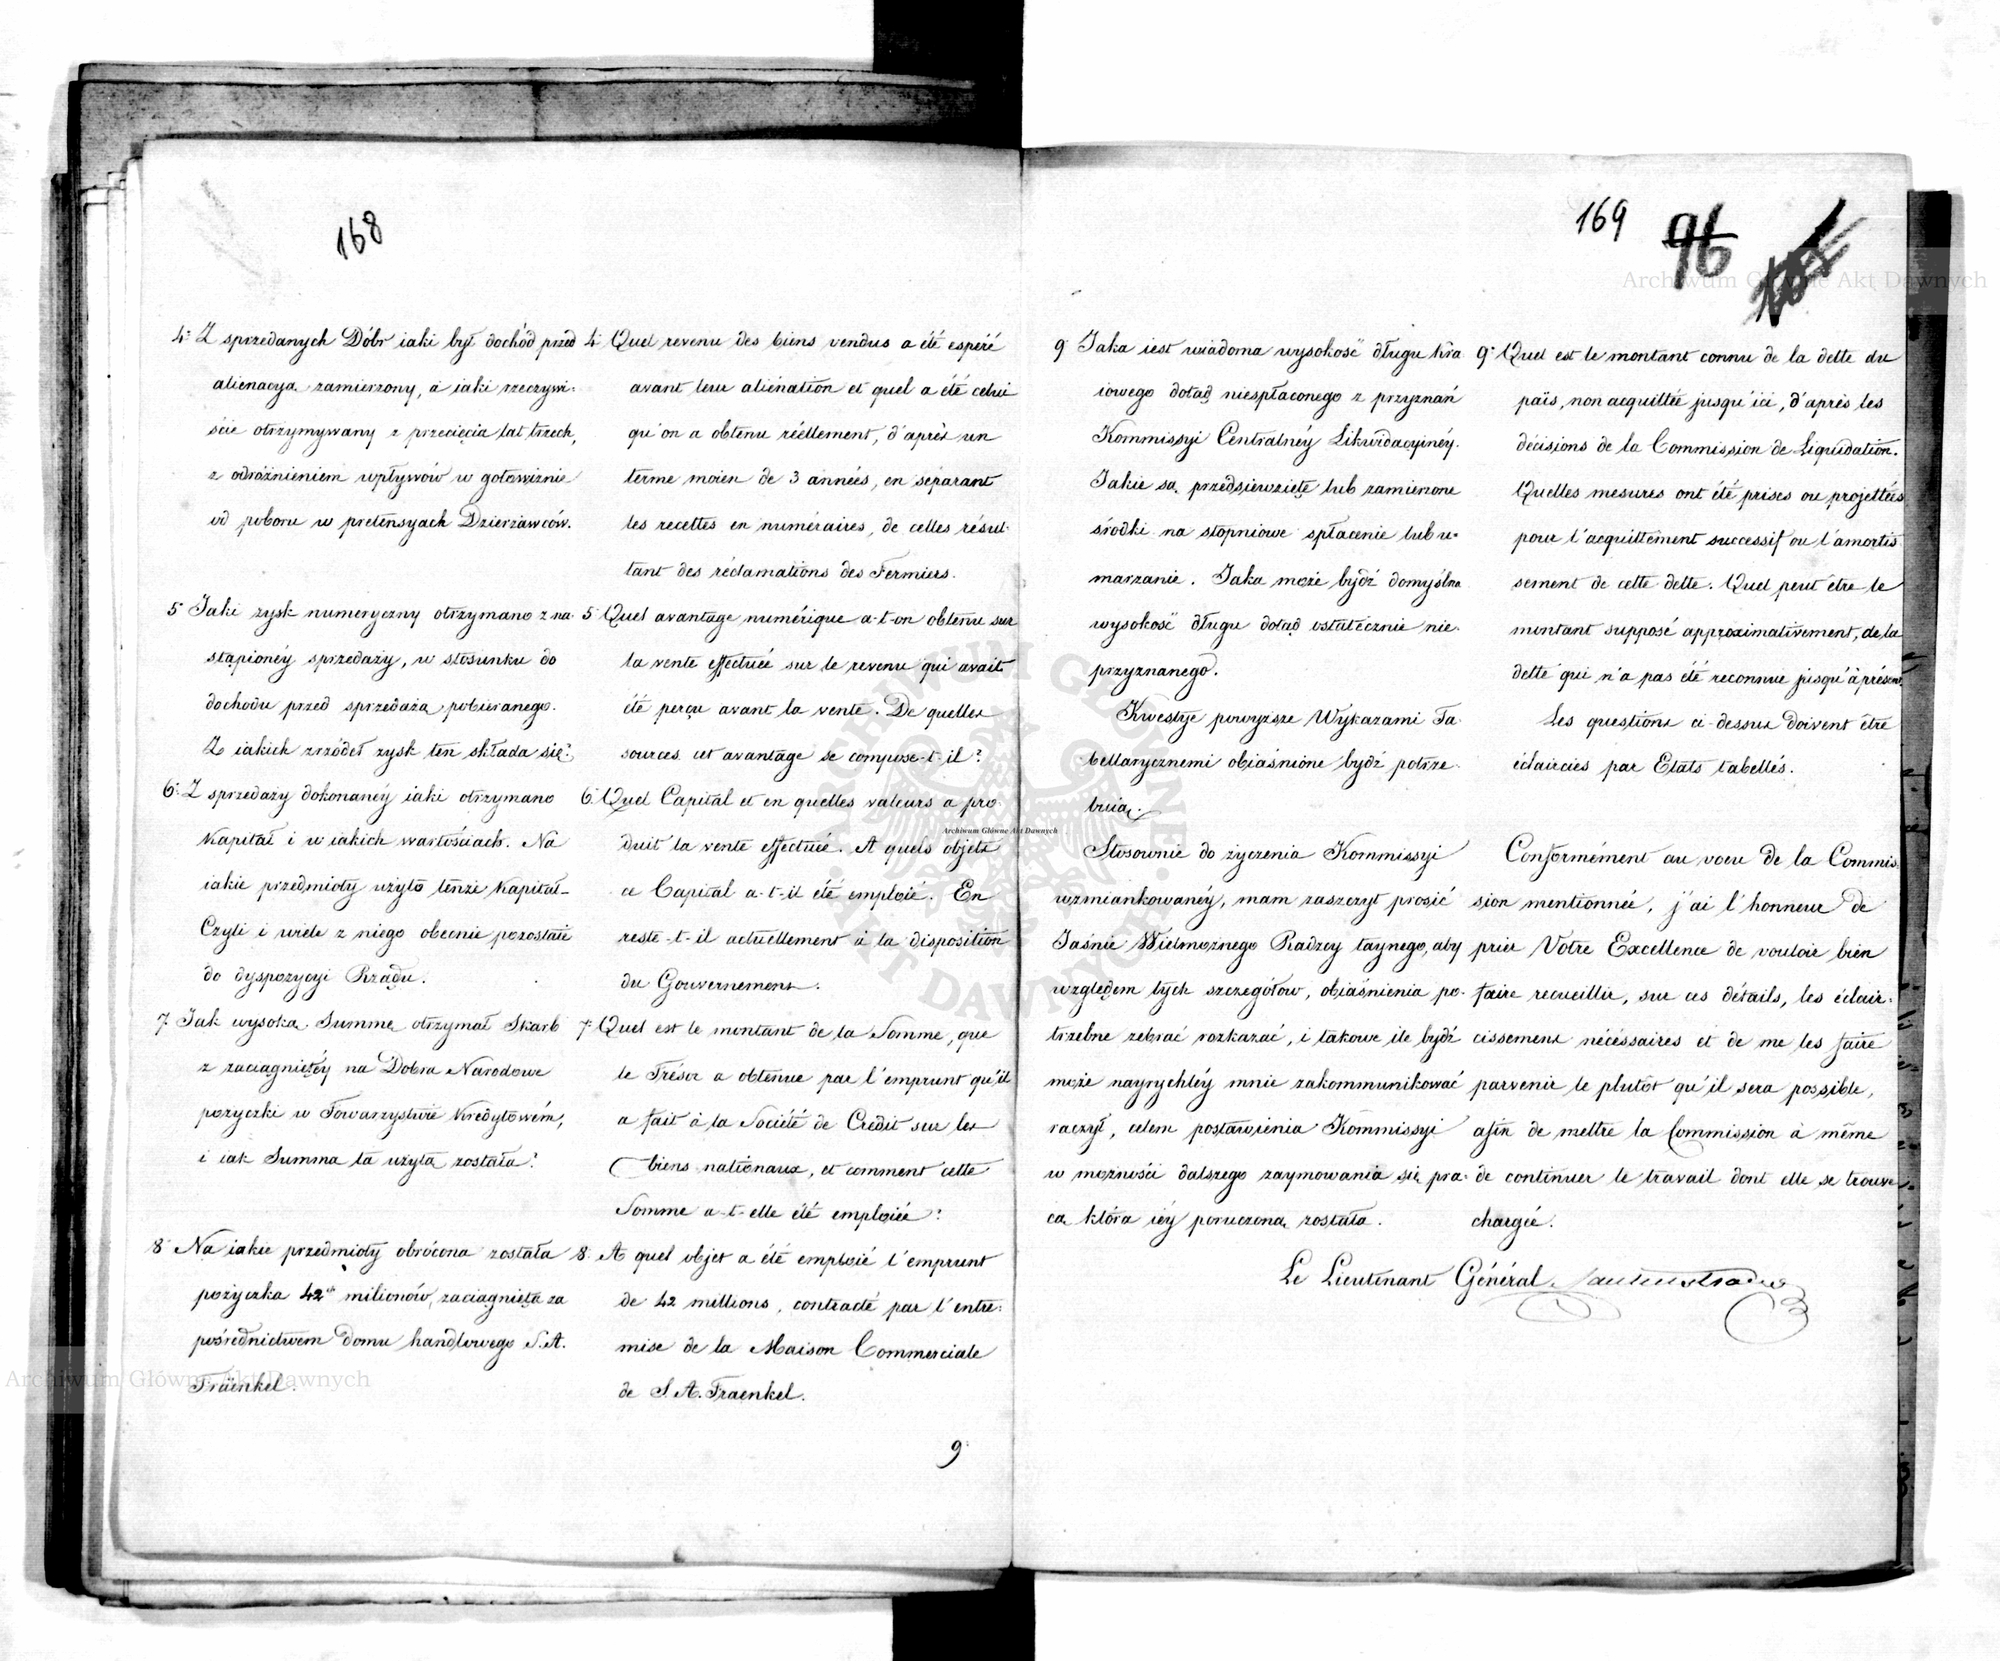 168
4º Z sprzedanych Dóbr iaki był dochód przed
alienacyą zamierzony, a iaki rzeczywi-
ście otrzymywany z przecięcia lat trzech,
z odróżnieniem wpływów w gotowiźnie
od poboru w pretensyach Dzierżawców.
5º Jaki zysk numeryczny otrzymano z na
stąpionéy sprzedaży, w stosunku do
dochodu przed sprzedażą pobieranego.
Z iakich zrzódeł zysk ten składa się?
6º Z sprzedaży dokonanéy iaki otrzymano
Kapitał i w iakich wartościach. Na
iakie przedmioty użyto tenże Kapitał_
Czyli i wiele z niego obecnie pozostaie
do dyspozycyi Rządu.
7º Jak wysoką Summę otrzymał Skarb
z zaciągniętéy na Dobra Narodowe
pożyczki w Towarzystwie Kredytowém,
i iak Summa ta użytą została?
8º Na iakie przedmioty obrócona została
pożyczka 42ch milionów, zaciągnięta za
pośrednictwem domu handlowego S. A.
Fräenkel.
4º Quel revenu des biens vendus a été espéré
avant leur aliénation et quel a été celui
qu'on a obtenu réellement, d'après un
terme moien de 3 années, en séparant
les recettes en numéraires, de celles résul-
tant des réclamations des Fermiers.
5º Quel avantage numérique a-t-on obtenu sur
la vente effectuée sur le revenu qui avait
été perçu avant la vente. De quelles
sources cet avantage se compose-t-il?
6º Quel Capital et en quelles valeurs a pro-
duit la vente effectuée. A quels objets
ce Capital a-t-il été emploié. En
reste-t-il actuellement à la disposition
du Gouvernement.
7º Quel est le montant de la Somme, que
le Trésor a obtenue par l'emprunt qu'il
a fait à la Société de Credit sur les
biens nationaux, et comment cette
Somme a-t-elle été emploiée?
8º A quel objet a été emploié l'emprunt
de 42 millions, contracté par l'entre-
mise de la Maison Commerciale
de S. A. Fraenkel.
9º
169
96
9º Jaka iest wiadoma wysokość długu Kra
iowego dotąd niespłaconego z przyznań
Kommissyi Centralnéy Likwidacyinéy.
Jakie są przedsięwzięte lub zamierzone
środki na stopniowe spłacenie lub u-
marzanie. Jaka może bydź domyślna
wysokość długu dotąd ostatecznie nie-
przyznanego.
Kwestye powyższe Wykazami Ta
bellarycznemi obiaśnione bydź potrze-
buią.
Stosownie do życzenia Kommissyi
wzmiankowanéy, mam zaszczyt prosić
Jaśnie Wielmożnego Radzcy taynego, aby
względem tych szczegółów, obiaśnienia po-
trzebne zebrać rozkazać, i takowe ile bydź
może nayrychléy mnie zakommunikować
raczył, celem postawienia Kommissyi
w możności dalszego zaymowania się pra-
cą która iéy poruczoną została.
9º Quel est le montant connu de la dette du
païs, non acquittée jusqu'ici, d'après les
décisions de la Commission de Liquidation.
Quelles mesures ont été prises ou projettées
pour l'acquittement successif ou l'amortis
sement de cette dette. Quel peut être le
montant supposé approximativement, de la
dette qui n'a pas été reconnue jusqu'àprésent.
Les questions ci-dessus doivent être
éclaircies par Etats tabellés.
Conformément au voeu de la Commis
sion mentionnée, j'ai l'honneur de
prier Votre Excellence de vouloir bien
faire recueillir, sur ces détails, les éclair-
cissements nécéssaires et de me les faire
parvenir le plutôt qu'il sera possible,
afin de mettre la Commission à même
de continuer le travail dont elle se trouve
chargée.
Le Lieutenant Général
Archiwum Główne Akt Dawnych
Archiwum Główne Akt Dawnych
Archiwum Główne Akt Dawnych
ARCHIWUM GŁÓWNE AKT DAWNYCH